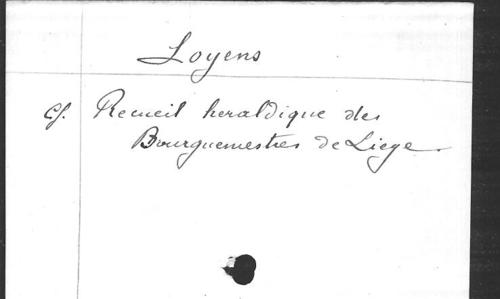 Loyens
Cf. Recueil heraldique des
Bourguemestres de Liege.